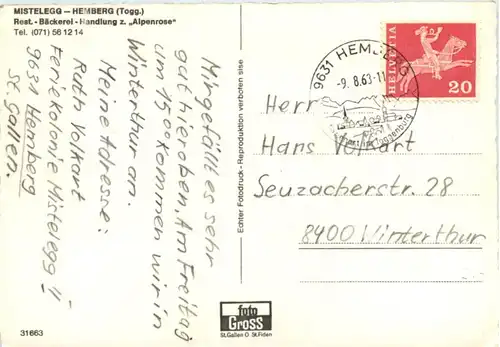 MISTELEGG — HEMBERG (Togg.)
Rest. - Bäckerei - Handlung z. „Alpenrose"
Tel. (071) 56 12 14
Mir gefällt es sehr
gut hieroben. Am Freitag
um 1500 kommen wir in
Winterthur an.
Meine Adresse:
Ruth Volkart
Ferienkolonie Mistelegg
9631 Hemberg
St. Gallen.
31663
Echter Fotodruck - Reproduktion verboten
foto
Gross
St.Gallen O St.Fiden
9631 HEMBERG
-9. 8.63-11
HELVETIA
20
Herr
Hans Volkart
Seuzacherstr. 28
8400 Winterthur